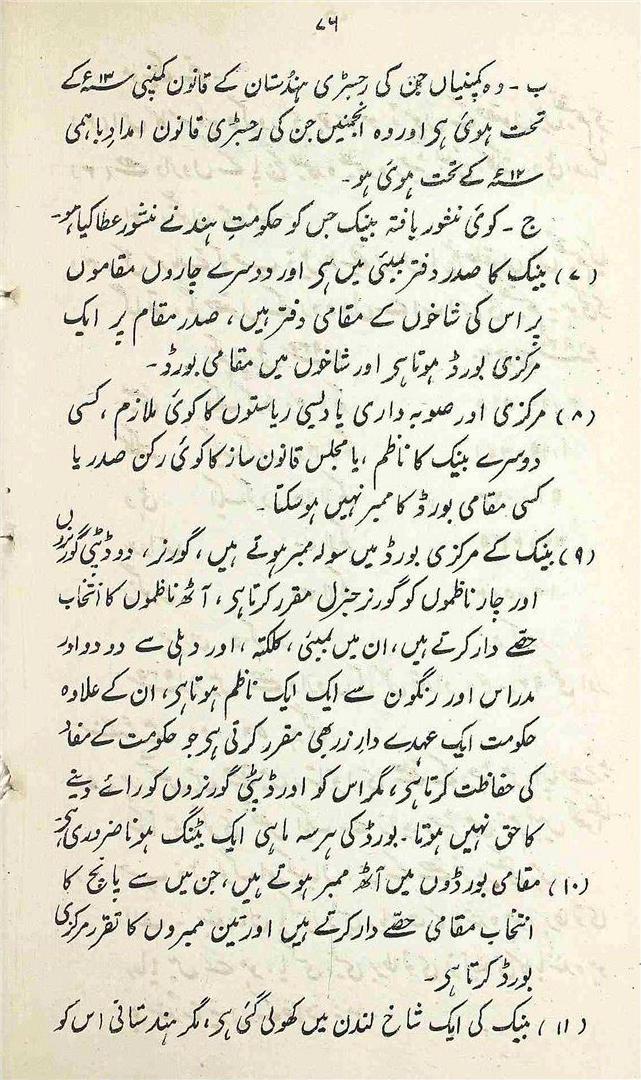 ۷۶
ب - وہ کمپنیاں جن کی رجسٹری ہندُستان کے قانون کمپنی ۱۳ء کے
تحت ہوئی ہی اور وہ انجمنیں جن کی رجسٹری قانون امدادِ باہمی
۱۲ء کے تحت ہوئی ہو۔
ج - کوئی منشور یافتہ بینک جس کو حکومتِ ہند نے منشور عطا کیا ہو۔
(۷) بینک کا صدر دفتر بمبئی میں ہی اور دوسرے چاروں مقاموں
پر اس کی شاخوں کے مقامی دفتر ہیں، صدر مقام پر ایک
مرکزی بورڈ ہوتا ہی اور شاخوں میں مقامی بورڈ۔
(۸) مرکزی اور صوبہ داری یا دیسی ریاستوں کا کوئی ملازم، کسی
دوسرے بینک کا ناظم، یا مجلس قانون ساز کا کوئی رکن صدر یا
کسی مقامی بورڈ کا ممبر نہیں ہو سکتا۔
(۹) بینک کے مرکزی بورڈ میں سولہ ممبر ہوتے ہیں، گورنر، دو ڈپٹی گورنروں
اور چار ناظموں کو گورنر جنرل مقرر کرتا ہی، آٹھ ناظموں کا انتخاب
حصّے دار کرتے ہیں، ان میں بمبئی، کلکتہ، اور دہلی سے دو دو اور
مدراس اور رنگون سے ایک ایک ناظم ہوتا ہی، ان کے علاوہ
حکومت ایک عہدے دارِ زر بھی مقرر کرتی ہی جو حکومت کے مفاد
کی حفاظت کرتا ہی، مگر اس کو اور ڈپٹی گورنروں کو رائے دینے
کا حق نہیں ہوتا۔ بورڈ کی ہر سہ ماہی ایک میٹنگ ہونا ضروری ہی۔
(۱۰) مقامی بورڈوں میں آٹھ ممبر ہوتے ہیں، جن میں سے پانچ کا
انتخاب مقامی حصّے دار کرتے ہیں اور تین ممبروں کا تقرر مرکزی
بورڈ کرتا ہی۔
(۱۱) بینک کی ایک شاخ لندن میں کھولی گئی ہی، مگر ہندستانی اس کو